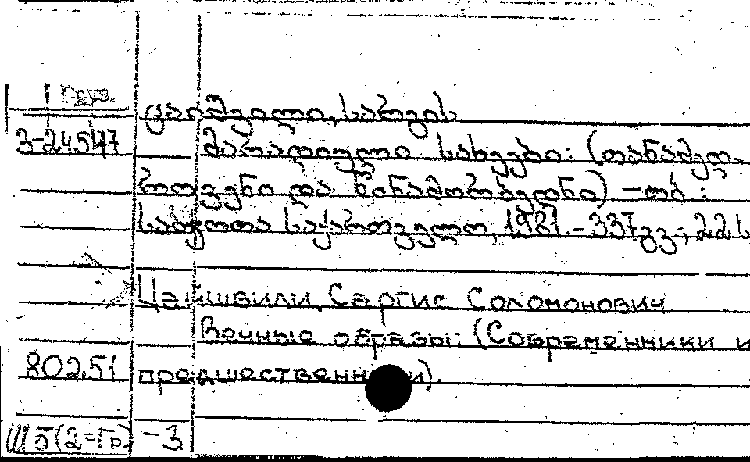 Груз.
ცაიშვილი, სარგის
3-24547 მარადიული სახეები: (თანამედ-
როვენი და წინამორბედნი) - თბ.:
საბჭოთა საქართველო, 1981. - 337 გვ.; 22 ს
Цаишвили, Саргис Соломонович
Вечные образы: (Современники и
80251 предшественники).
Ш5(2=Гр) - 3